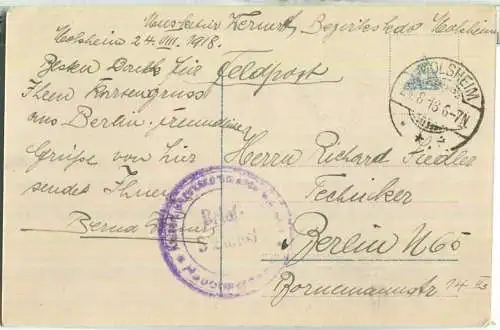 Musketier Bezirkskdo Molsheim
Molsheim 24. VIII. 1918.
Besten Dank für
Feldpost
Ihren Kartengruss
aus Berlin. freundliche
Grüße von hier
sendet Ihnen
Bernd
MOLSHEIM
8.18.6-7N.
Brief-
Herrn Richard Fiedler
Techniker
Berlin N65
Bornemannstr 14